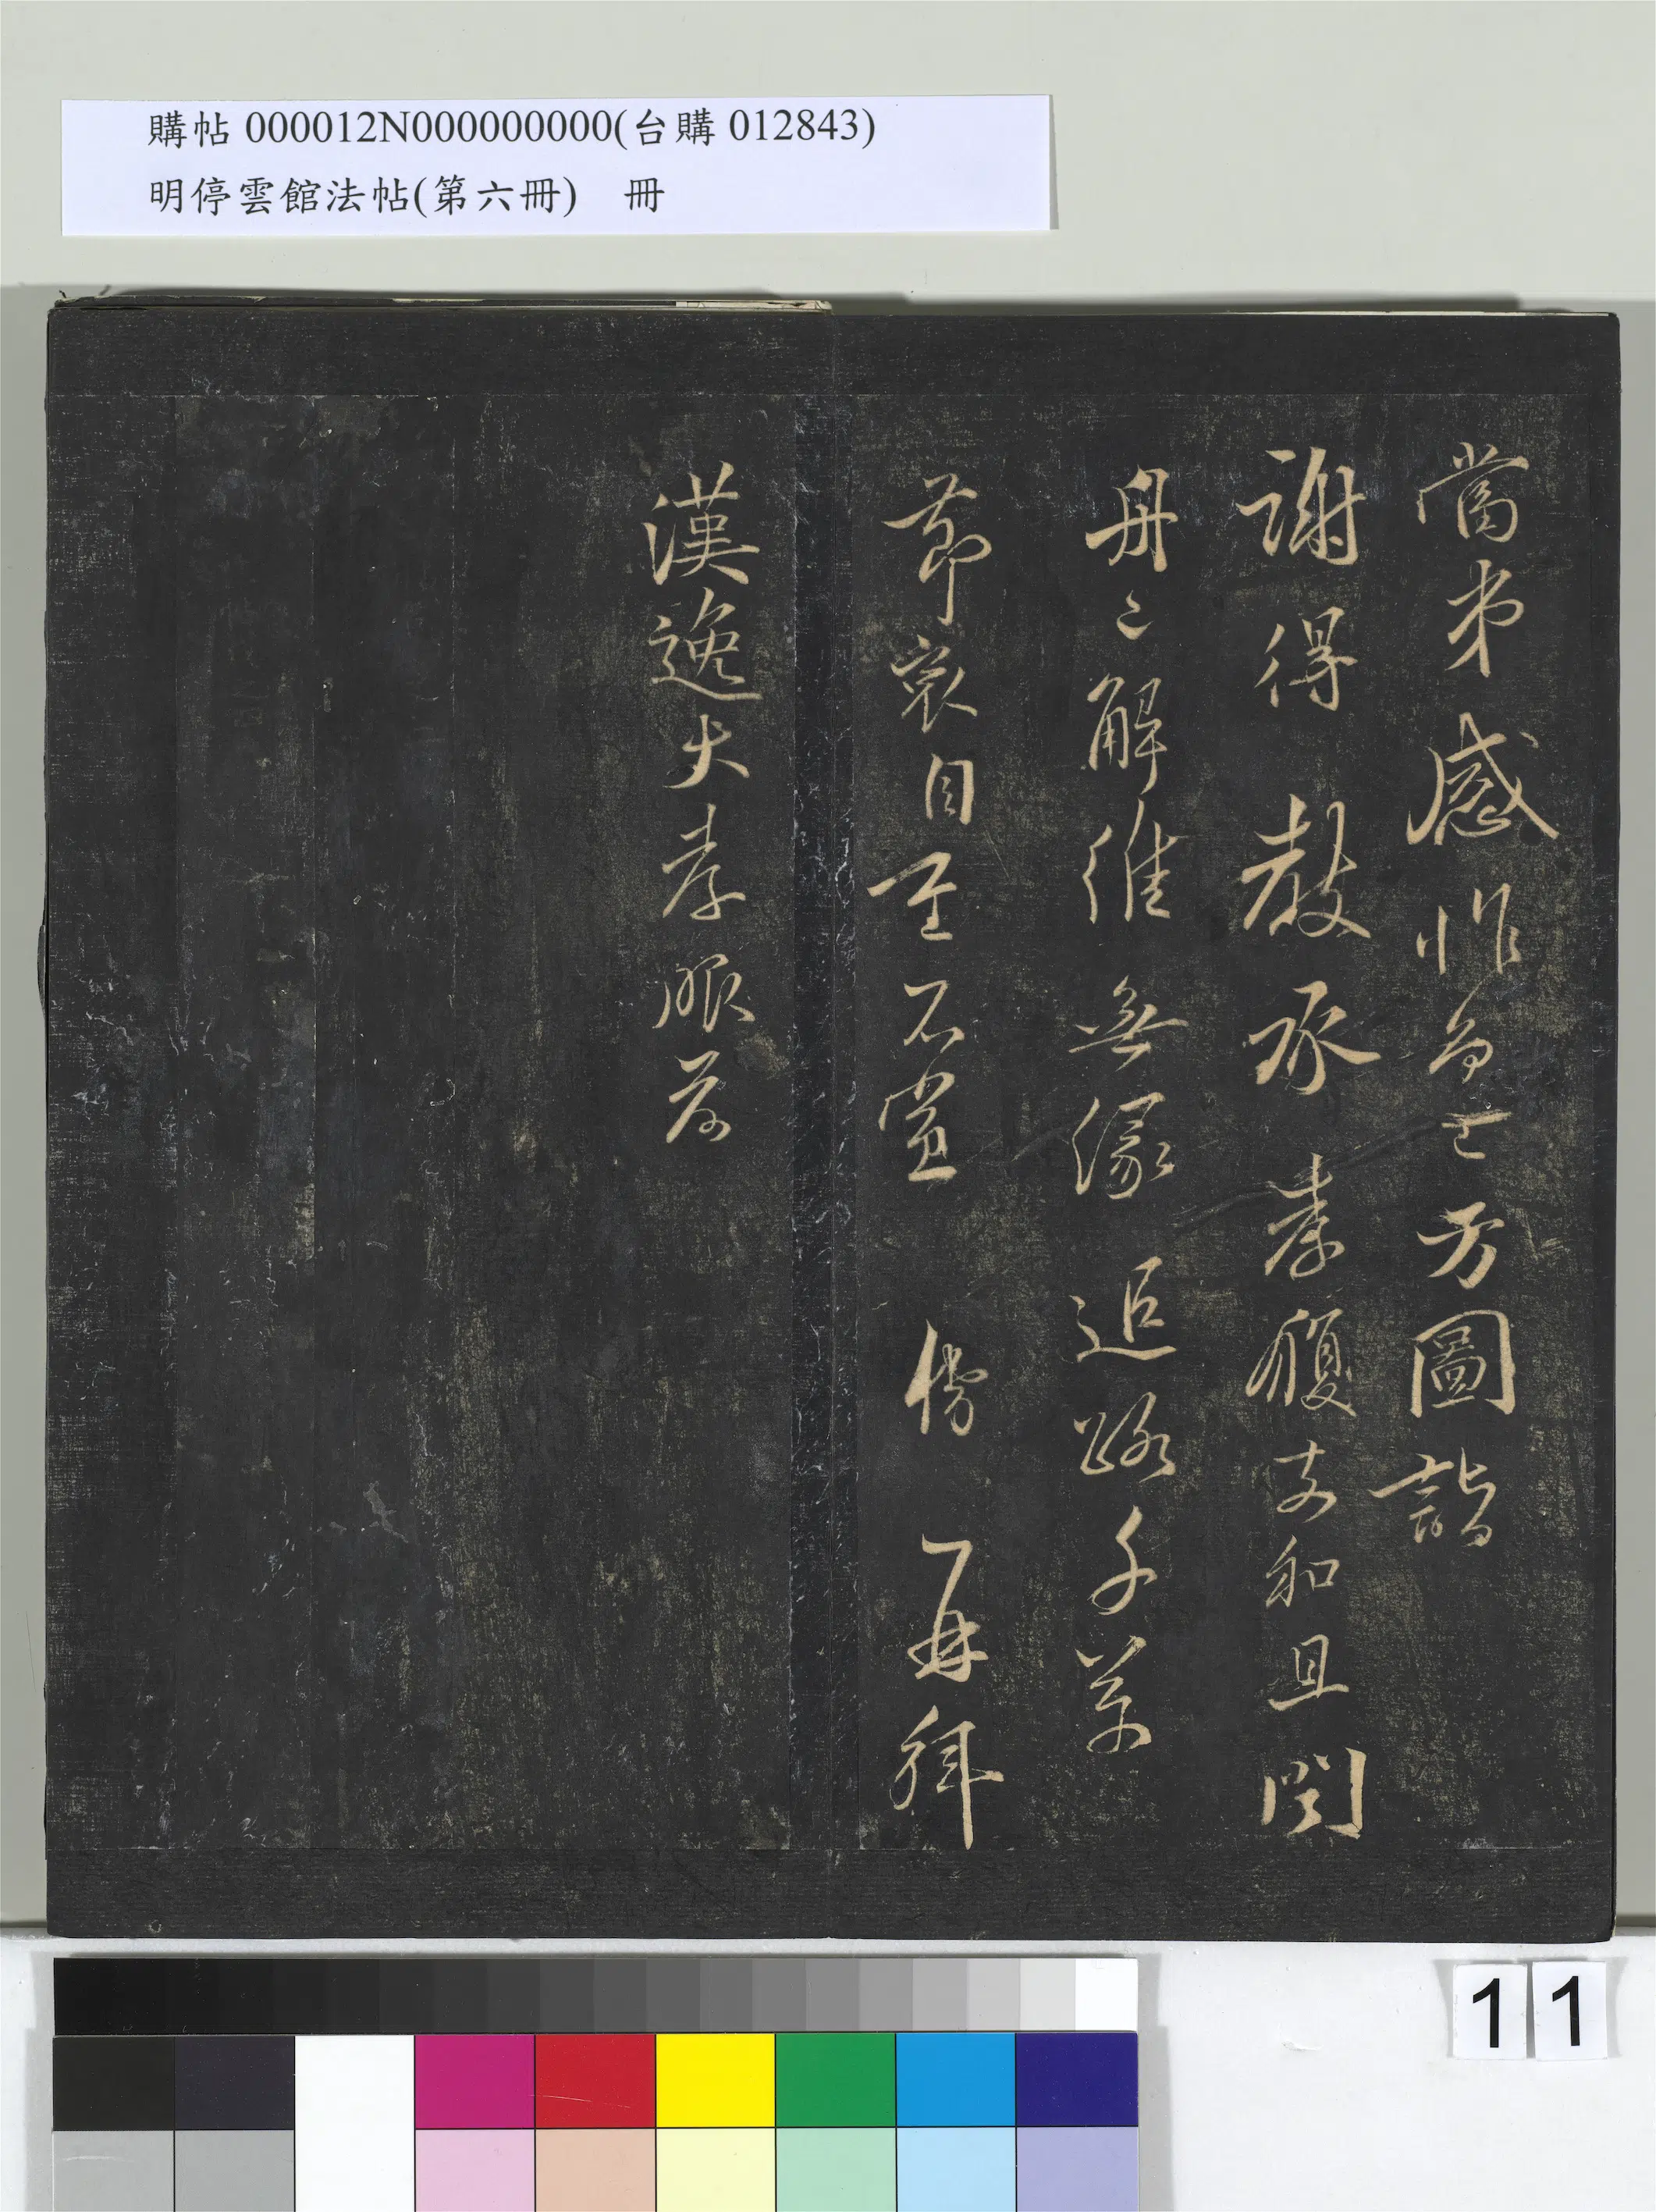 購帖 000012N000000000(台購 012843)
明停雲館法帖(第六冊) 冊
當弟感怍多已方圖詣
謝得教承孝履支和且闋
舟之解維無緣追路千萬
節哀自重不宣 再拜
漢逸大孝服前
11